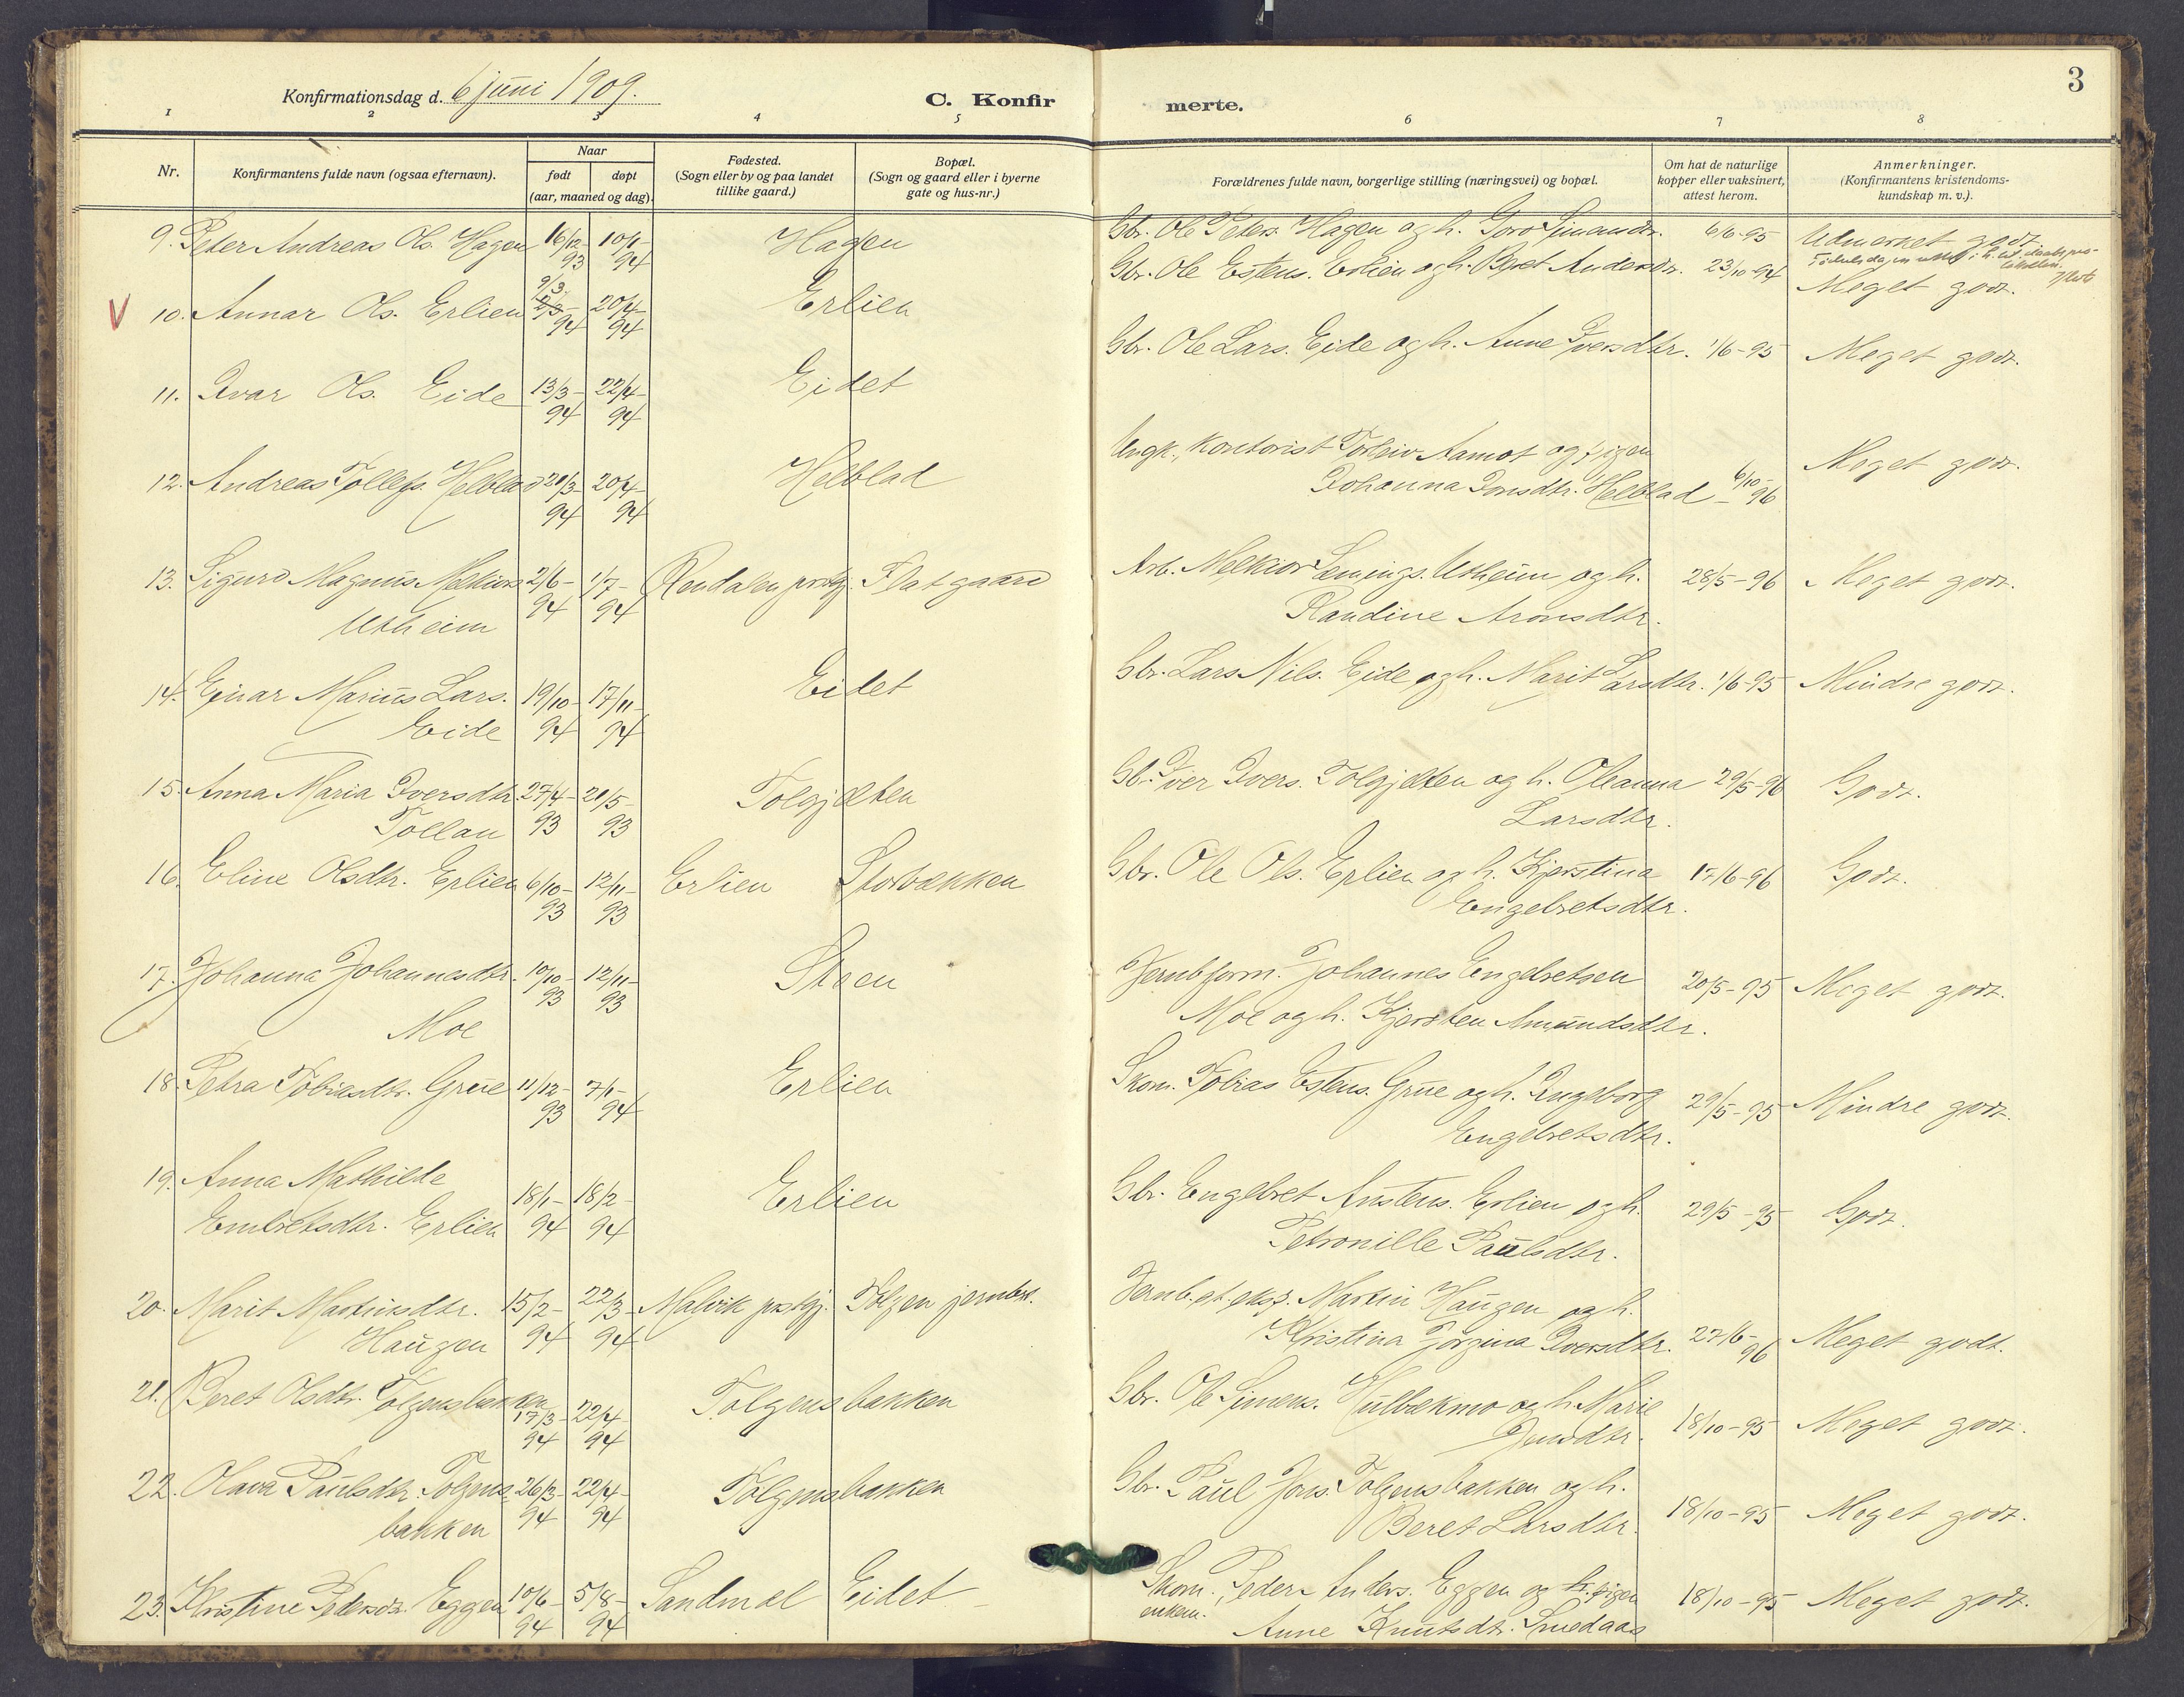 3
Konfirmationsdag d. 6 juni 1909.
C. Konfirmerte.
1 2 3 4 5 6 7 8
Nr.
Konfirmantens fulde navn (ogsaa efternavn).
Naar
født døpt
(aar, maaned og dag).
Fødested.
(Sogn eller by og paa landet
tillike gaard.)
Bopæl.
(Sogn og gaard eller i byerne
gate og hus-nr.)
Forældrenes fulde navn, borgerlige stilling (næringsvei) og bopæl.
Om hat de naturlige
kopper eller vaksinert,
attest herom.
Anmerkninger.
(Konfirmantens kristendoms-
kundskap m. v.).
9. Peter Andreas Ols. Hagen 16/12-93 10/1-94 Hagen Gbr. Ole Peters. Hagen og h. Goro Simendr. 6/6-95 Udmerket godt
V 10. Annar Ols. Erlien 9/3 2/3-94 20/4-94 Erlien Gbr. Ole Estens. Erlien og h. Beret Andersdr. 23/10-94 Meget godt.
11. Ivar Ols. Eide 13/3-94 22/4-94 Eidet Gbr. Ole Lars. Eide og h. Anne Iversdtr. 1/6-95 Meget godt.
12. Andreas Tollefs. Helblad 20/3-94 20/4-94 Helblad Ungk., Kontorist Torleiv Aamot og pigen
Johanna Jonsdtr. Helblad 6/10-96 Meget godt.
13. Sigurd Magnus Melkiors. 2/6-94 1/7-94 Rendalen prstgj. Flatgaard Arb. Melkior Lemings. Utheim og h. 28/5-96 Meget godt.
Utheim Randine Aronsdtr.
14. Einar Marius Lars. 19/10-94 17/11-94 Eidet Gbr. Lars Nils. Eide og h. Marit Larsdtr. 1/6-95 Mindre godt.
Eide
15. Anna Maria Iversdtr. 27/4-93 21/5-93 Tolgjæten Gb. Iver Ivers. Tolgjæten og h. Oleanna 29/5-96 Godt.
Tollan Larsdtr.
16. Eline Olsdtr. Erlien 6/10-93 12/11-93 Erlien Storbækken Gbr. Ole Ols. Erlien og h. Kjerstina 17/6-96 Godt.
Engebretsdtr.
17. Johanna Johannesdtr. 10/10-93 12/11-93 Støen Jernb.form. Johannes Engebretsen 20/5-95 Meget godt.
Moe Moe og h. Kjersten Amundsdtr.
18. Petra Tobiasdtr. Grue 11/12-93 7/1-94 Erlien Skom. Tobias Estens. Grue og h. Ingeborg 29/5-95 Mindre godt.
Engebretsdtr.
19. Anna Mathilde
Embretsdtr. Erlien 18/1-94 18/2-94 Erlien Gbr. Engebret Austens. Erlien og h. 29/5-95 Godt.
Petronille Paulsdtr.
20. Marit Martinsdtr. 15/2-94 22/3-94 Malvik prstgj. Tolgen jernbst. Jernb.st.eksp. Martin Haugen og h.
Haugen Kristina Jørgina Iversdtr. 27/6-96 Meget godt.
21. Beret Olsdtr. Tolgensbakken 17/3-94 22/4-94 Tolgensbakken Gbr. Ole Simens. Hulbækmo og h. Marie
Jonsdtr. 18/10-95 Meget godt.
22. Olava Paulsdtr. Tolgens- 26/3-94 22/4-94 Tolgensbakken Gbr. Paul Jons. Tolgensbakken og h.
bakken Beret Larsdtr. 18/10-95 Meget godt.
23. Kristine Pedersdr. Eggen 10/6-94 5/8-94 Sandmæl Eidet Skom., Peder Anders. Eggen og h. pigen 18/10-95 Meget godt.
enkem. Anne Knutsdtr. Smedaas